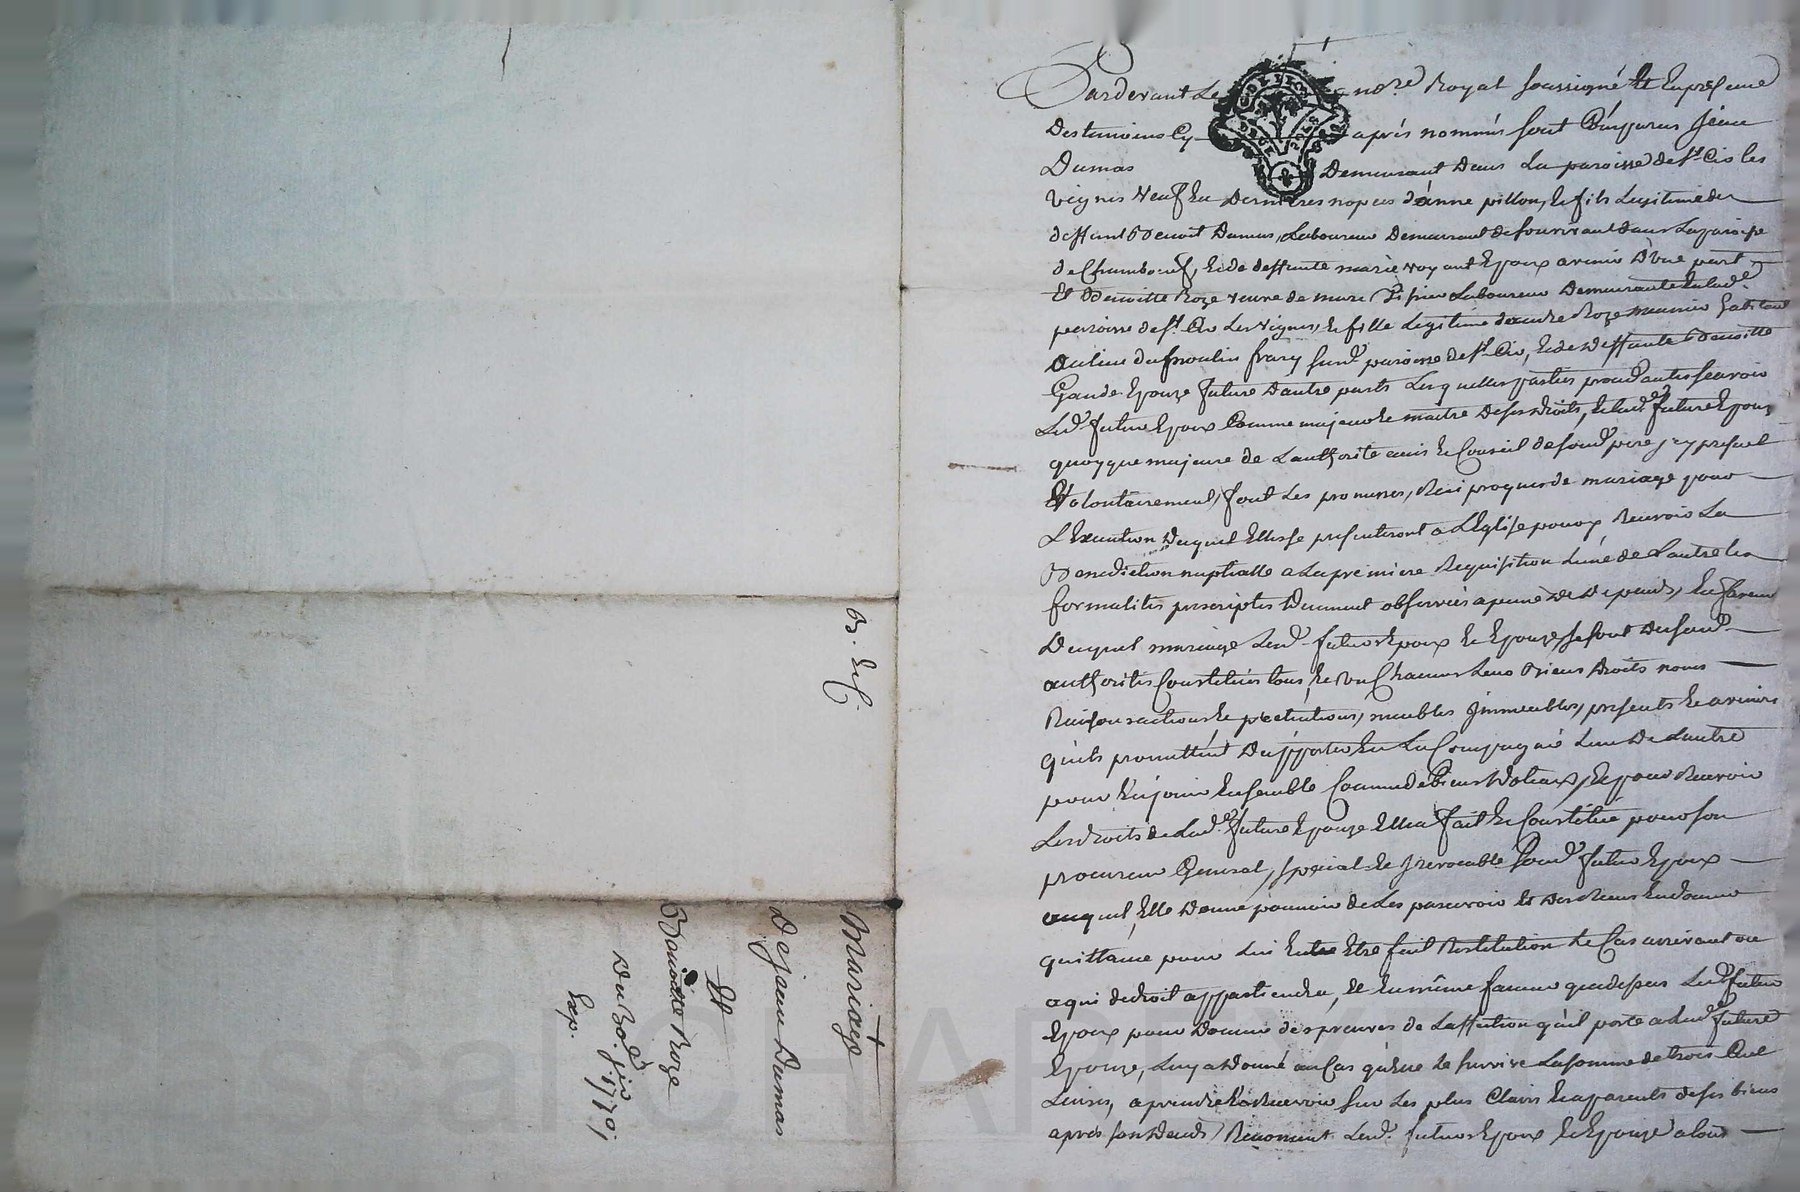 Mariage
De jean Dumas
Et
Benoitte Roze
Du 30e juin 1779
Exp.
Pardevant Le nore Royal soussigné Et En presence
Des temoins Cy après nommés sont Comparus Jean
Dumas Demeurant Dans La paroisse de st Cir les
vignes veuf En Dernieres nopces d'anne pillon, Et fils Legitime de
deffunt Benoit Dumas, Laboureur Demeurant de son vivant dans La paroisse
de Chambœuf, Et de deffunte marie Epoux avenir D'Une part
Et Benoitte Roze veuve de Laboureur Demeurante En lad.e
paroisse de st Cir Les vignes, Et fille Legitime d'andré Roze meunier habitant
Au lieu du moulin frary susd. paroisse de st Cir, Et de Deffunte Benoitte
Epouze future D'autre part Lesquelles parties procedantes scavoir
Led. futur Epoux Comme majeur Et maitre De ses droits, Et lad. future Epouze
quoyque majeure de L'authorité avis Et Conseil de sond. pere, jcy present
Volontairement, font Les promesses, Reciproques de mariage pour
L'Execution Duquel Elles se presenteront a L'Eglise pour y Recevoir La
Benediction nuptialle a La premiere Requisition L'une de L'autre les
formalités prescriptes Duement observées a peine De Depends, En faveur
Duquel mariage Lesd. futurs Epoux Et Epouze se sont De sesd.
authorités Constitués tous, Et Un Chacuns Leurs Biens Droits noms
Raisons actions Et pretentions, meubles Jmmeubles, presents Et avenirs
qu'ils promettent D'apporter En La Compagnie L'une De L'autre
pour En jouir Ensemble Comme de Biens Dotaux, Et pour Recevoir
Les droits de Lad. future Epouze Elle a fait Et Constitué pour son
procureur General, special Et Jrrevocable Led. futur Epoux
auquel, Elle Donne pouvoir de Les percevoir Et En donner
quittance pour Lui En Etre fait Restitution Le Cas arrivant ou
a qui de droit appartiendra, Et En même faveur que dessus Led. futur
Epoux pour Donner des preuves de L'affection qu'il porte a Lad. future
Epouze, Luy a Donné au Cas qu'Elle Le survive La somme de trois Cent
Livres, a prendre Et Recevoir sur Les plus Clairs Et aparents de ses biens
après son Decès, Lesd. futurs Epoux Et Epouze